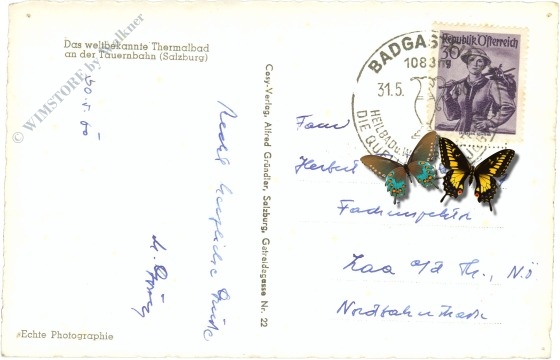 Das weltbekannte Thermalbad
an der Tauernbahn (Salzburg)
© WIMSTORE by Walkner
Recht herzliche Grüße
Echte Photographie
Cosy-Verlag, Alfred Gründler, Salzburg, Getreidegasse Nr. 22
BADGAS
31.5.
HEILBAD
DIE QU
Republik Österreich
30
Herbert
Fachinspektor
Laa a/d Th., N.Ö
Nordbahnstraße